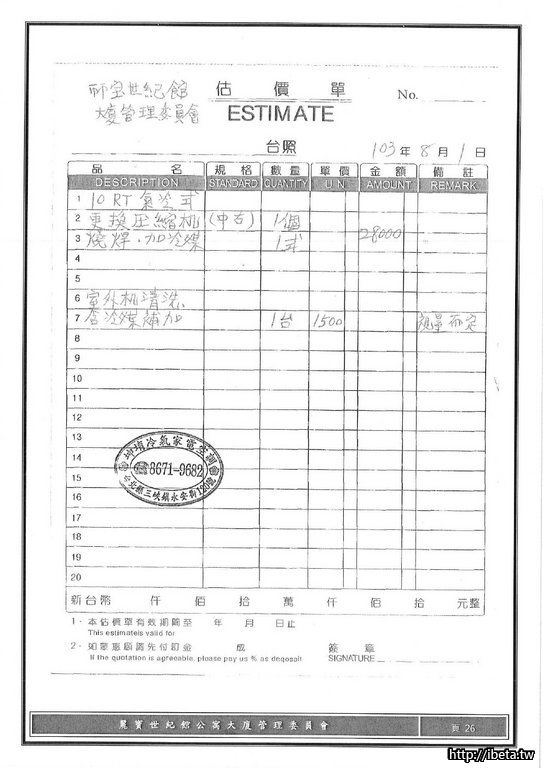 師宝世紀館
大廈管理委員會
估價單
ESTIMATE
No.
台照
103年8月1日
品名 規格 數量 單價 金額 備註
DESCRIPTION STANDARD QUANTITY U.N. AMOUNT REMARK
1 10 RT 氣冷式
2 更換压縮机 (中古) 1個
3 燒焊.加冷媒 1式 28000
4
5
6 室外机清洗.
7 含冷煤補加 1台 1500 視量而定
8
9
10
11
12
13
14
15
16
17
18
19
20
坤堉冷氣家電空調會
8671-9682
台北縣三峽鎮永安街120號
新台幣 仟 佰 拾 萬 仟 佰 拾 元整
1. 本估價單有效期間至 年 月 日止
This estimateis valid for
2. 如蒙惠顧請先付訂金 成 簽章
If the quotation is agreeable, please pay us % as deposit SIGNATURE
麗寶世紀館公寓大廈管理委員會 頁 26
http://ibeta.tw